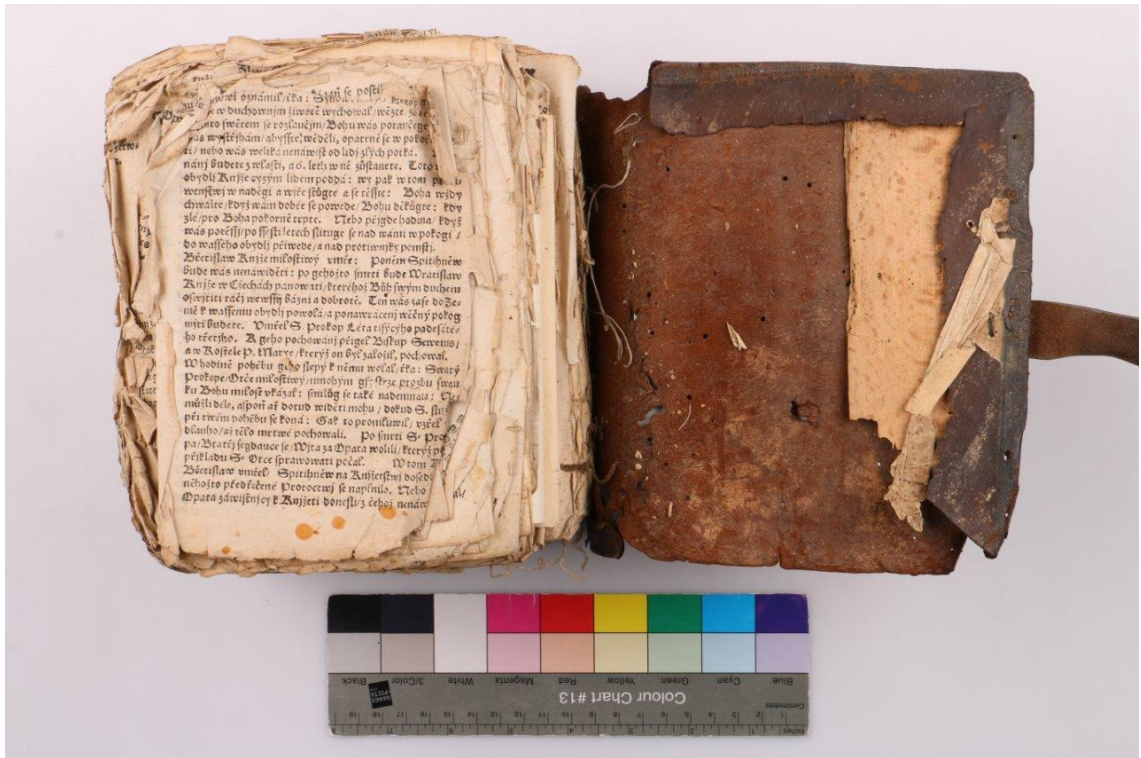 ynowi oznámil/řka: Synowé
w duchownjm žiwotě wychowal/wězte/že
tjmto swětem se rozlaučjm/Bohu was poraučege
was wystřjhám/abyste wěděli, opatrně se w pokoře
ti/ nebo was weliká nenáwist od lidj zlých potká.
náni budete z wlasti, a 6. leth w nj zůstanete. Toto
obydlj Knjže cyzým lidem poddá: wy pak w tom
wenstwj w naděgi a wjře stůgte a se těšte: Boha wždy
chwalte/když wám dobře se powede/Bohu děkůgte: kdy
zle/pro Boha pokorně trpte. Nebo přigde hodina/ když
was potěšj/po šesti letech slituge se nad wámi w pokogi/
do wašeho obydlj přiwede/a nad protiwnjky pomstj.
Břetislaw Knjže milostiwý vmře: Poněm Spitihněw
bude was nenáwiděti: po gehožto smrti bude Wratislaw
Knjže w Cžechách panowati/kteréhož Bůh swým duchem
oswjtiti ráčj w wěčšj bázni a dobrotě. Ten was zase do Ze-
mě k wašemu obydlj powolá/a ponawrácenj wěčný pokog
mjti budete. Vmřel S. Prokop Léta tisýcýho padesáté-
ho třetjho. K geho pochowánj přigel Biskup Sewerus/
a w Kostele P. Marye/kterýž on byl založil, pochowal.
W hodině pohřbu geho slepý k němu wolal, řka: Swatý
Prokope/Otče milostiwý/mnohým gsy skrze prozbu swau
ku Bohu milost vkázal: smilůg se také nademnau: Ne
můžli déle, aspoň až dotud widěti mohu/ dokud S. služ
při twém pohřbu se koná: Gak to promluwil/ vzřel
dlauho/až tělo mrtwé pochowali. Po smrti S. Pro
pa/Bratřj segdauce se/Wjta za Opata wolili/kterýž po
přjkladu S. Otce sprawowati počal. W tom
Břetislaw vmřel/ Spitihněw na Knjžetstwj dosedl
něhožto předřečené Proroctwj se naplnilo. Nebo
Opata záwistnjcy k Knjžeti donesli/z čehož nenáw
Black
3/Color
White
Magenta
Red
Yellow
Green
Cyan
Blue
Colour Chart #13
DANES
PICTA
Centimetres
1 2 3 4 5 6 7 8 9 10 11 12 13 14 15 16 17 18 19
Inches
1 2 3 4 5 6 7